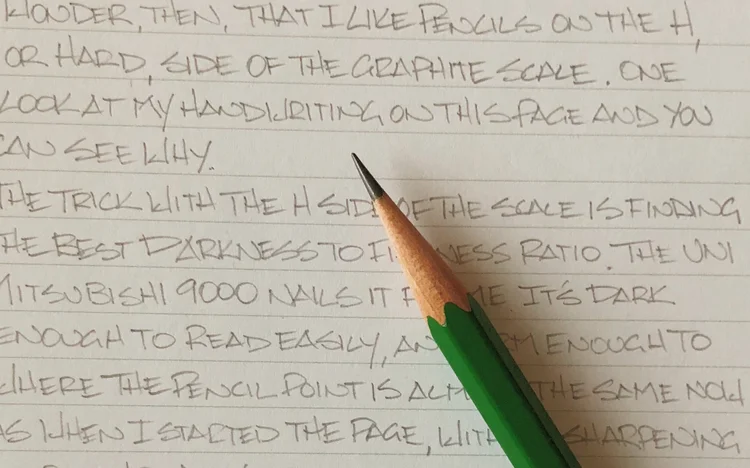 WONDER, THEN, THAT I LIKE PENCILS ON THE H,
OR HARD, SIDE OF THE GRAPHITE SCALE. ONE
LOOK AT MY HANDWRITING ON THIS PAGE AND YOU
CAN SEE WHY.
THE TRICK WITH THE H SIDE OF THE SCALE IS FINDING
THE BEST DARKNESS TO RATIO. THE UNI
MITSUBISHI 9000 NAILS IT ME IT'S DARK
ENOUGH TO READ EASILY, ENOUGH TO
WHERE THE PENCIL POINT IS THE SAME NOW
AS WHEN I STARTED THE PAGE, SHARPENING